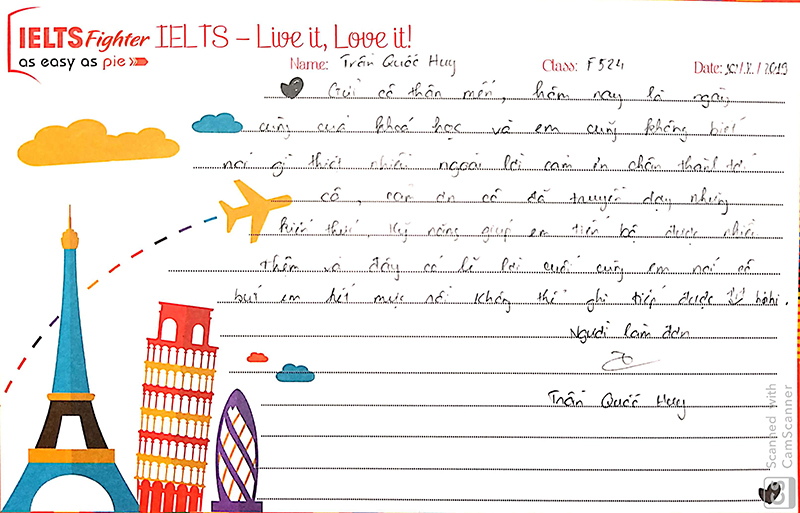 IELTS Fighter IELTS – Live it, Love it!
as easy as pie
Name: Trần Quốc Huy Class: F524 Date: /2019
Gửi cô thân mến, hôm nay là ngày
cuối của khoá học và em cũng không biết
nói gì thiết nhiều ngoài lời cảm ơn chân thành tới
cô, cảm ơn cô đã truyền dạy những
kiến thức, kỹ năng giúp em tiến bộ được nhiều
thêm và đây có lẽ lời cuối cùng em nói cô
bút em hết mực rồi không thể ghi tiếp được hihi.
Người làm đơn
Trần Quốc Huy
Scanned with
CamScanner
CS